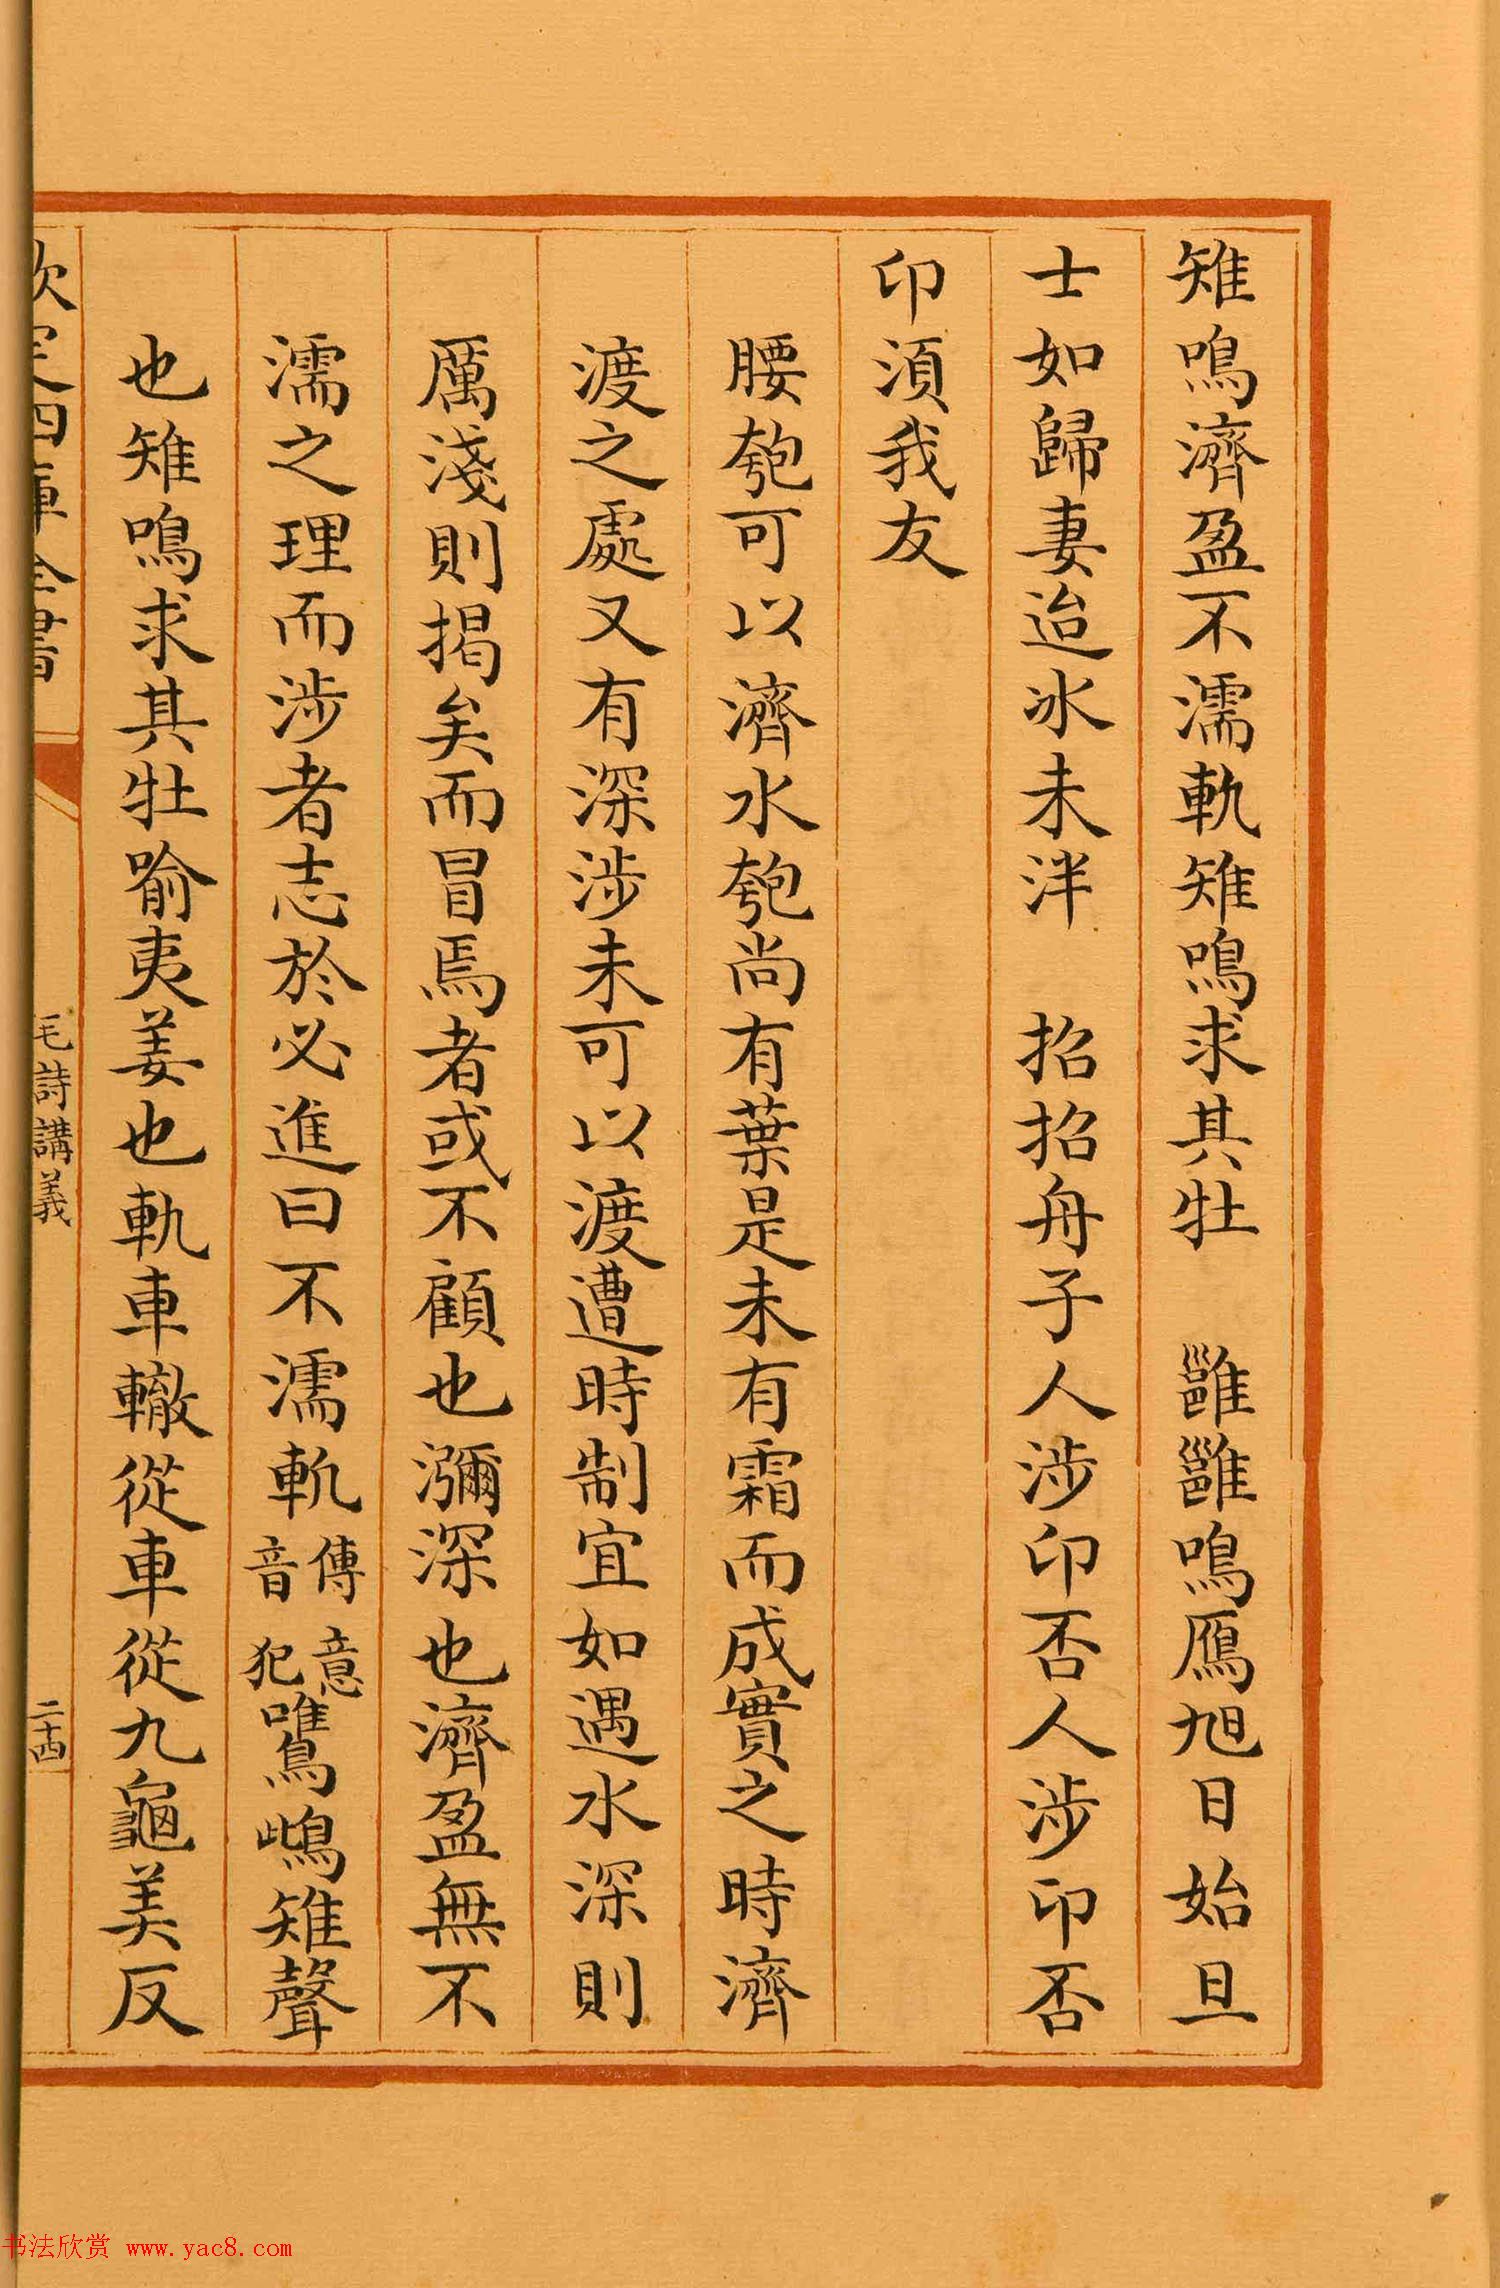 雉鳴濟盈不濡軌雉鳴求其牡　雝雝鳴鴈旭日始旦
士如歸妻迨冰未泮　招招舟子人涉卬否人涉卬否
卬須我友
腰匏可以濟水匏尚有葉是未有霜而成實之時濟
渡之處又有深涉未可以渡遭時制宜如遇水深則
厲淺則揭矣而冒焉者或不顧也瀰深也濟盈無不
濡之理而涉者志於必進曰不濡軓傳意音犯鷕鷕雉聲
也雉鳴求其牡喻夷姜也軌車轍從車從九龜美反
欽定四庫全書
毛詩講義
二十四
书法欣赏 www.yac8.com